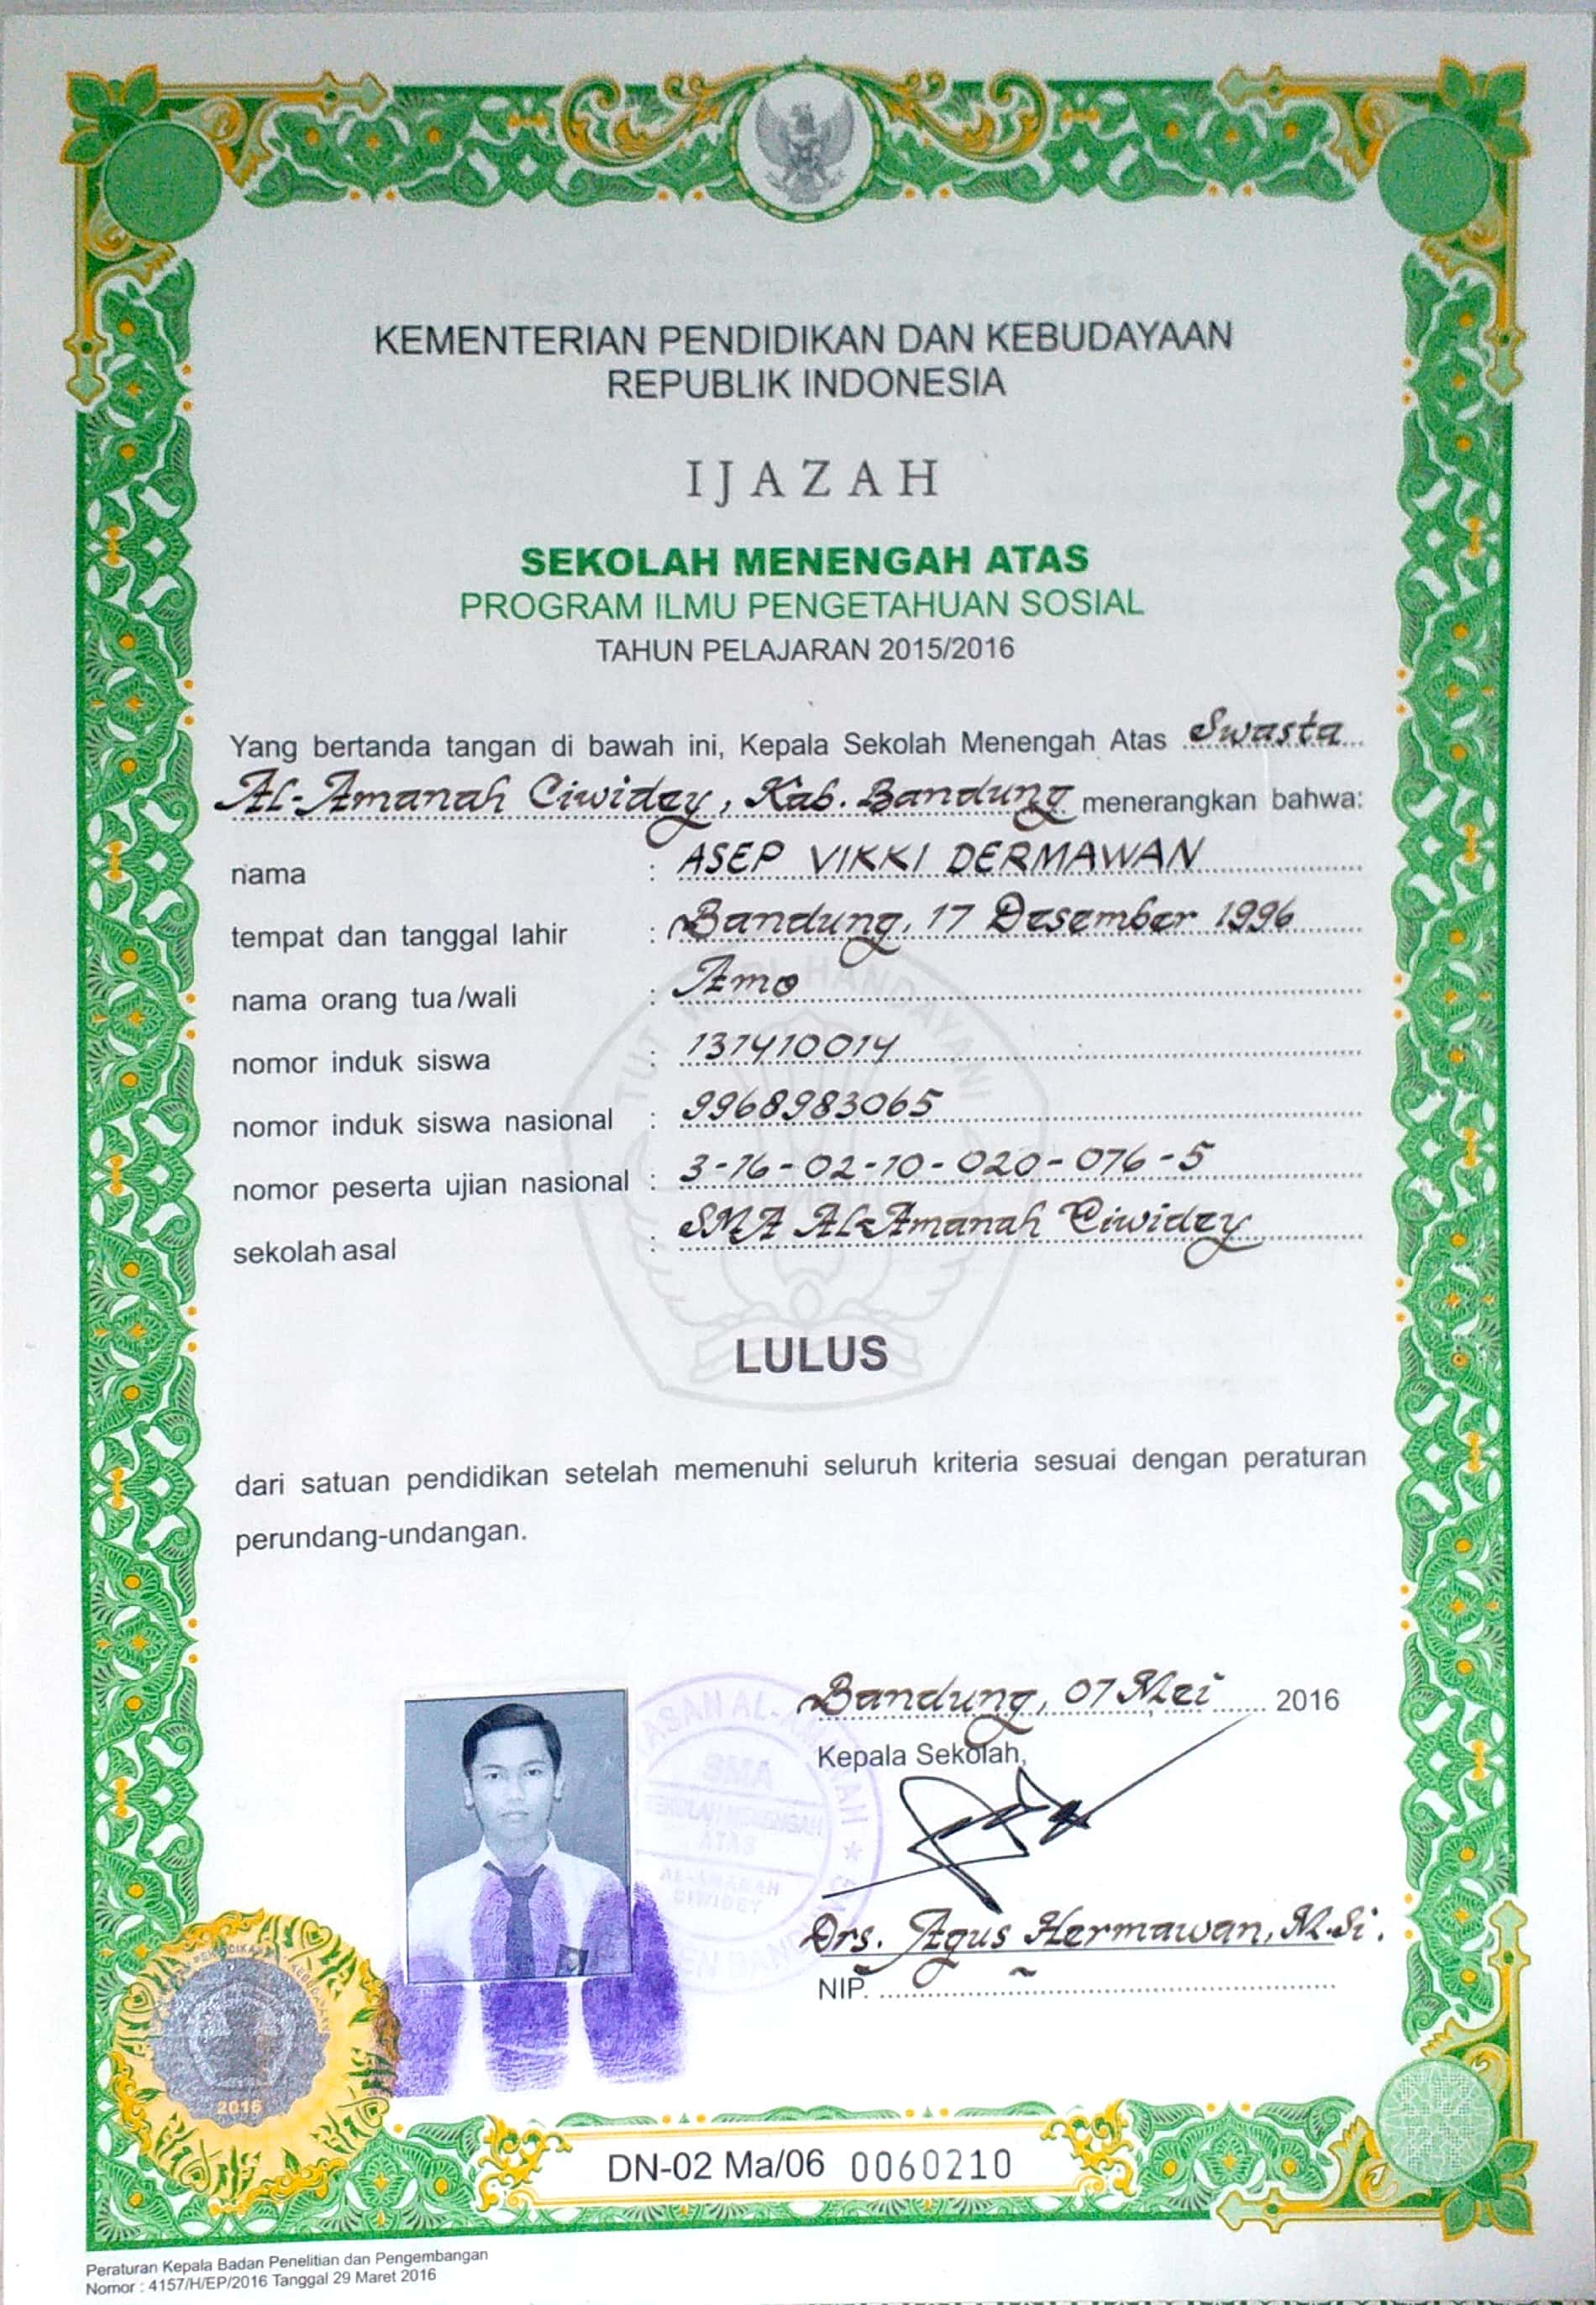 KEMENTERIAN PENDIDIKAN DAN KEBUDAYAAN
REPUBLIK INDONESIA
IJAZAH
SEKOLAH MENENGAH ATAS
PROGRAM ILMU PENGETAHUAN SOSIAL
TAHUN PELAJARAN 2015/2016
Yang bertanda tangan di bawah ini, Kepala Sekolah Menengah Atas Swasta
Al-Amanah Ciwidey, Kab. Bandung menerangkan bahwa:
nama : ASEP VIKKI DERMAWAN
tempat dan tanggal lahir : Bandung, 17 Desember 1996
nama orang tua/wali : Amo
nomor induk siswa : 131410014
nomor induk siswa nasional : 9968983065
nomor peserta ujian nasional : 3-16-02-10-020-076-5
sekolah asal : SMA Al-Amanah Ciwidey
TUT WURI HANDAYANI
LULUS
dari satuan pendidikan setelah memenuhi seluruh kriteria sesuai dengan peraturan
perundang-undangan.
Bandung, 07 Mei 2016
Kepala Sekolah,
SMA
ATAS
AL-AMANAH
CIWIDEY
Drs. Agus Hermawan, M.Si.
NIP. -
2016
DN-02 Ma/06 0060210
Peraturan Kepala Badan Penelitian dan Pengembangan
Nomor : 4157/H/EP/2016 Tanggal 29 Maret 2016